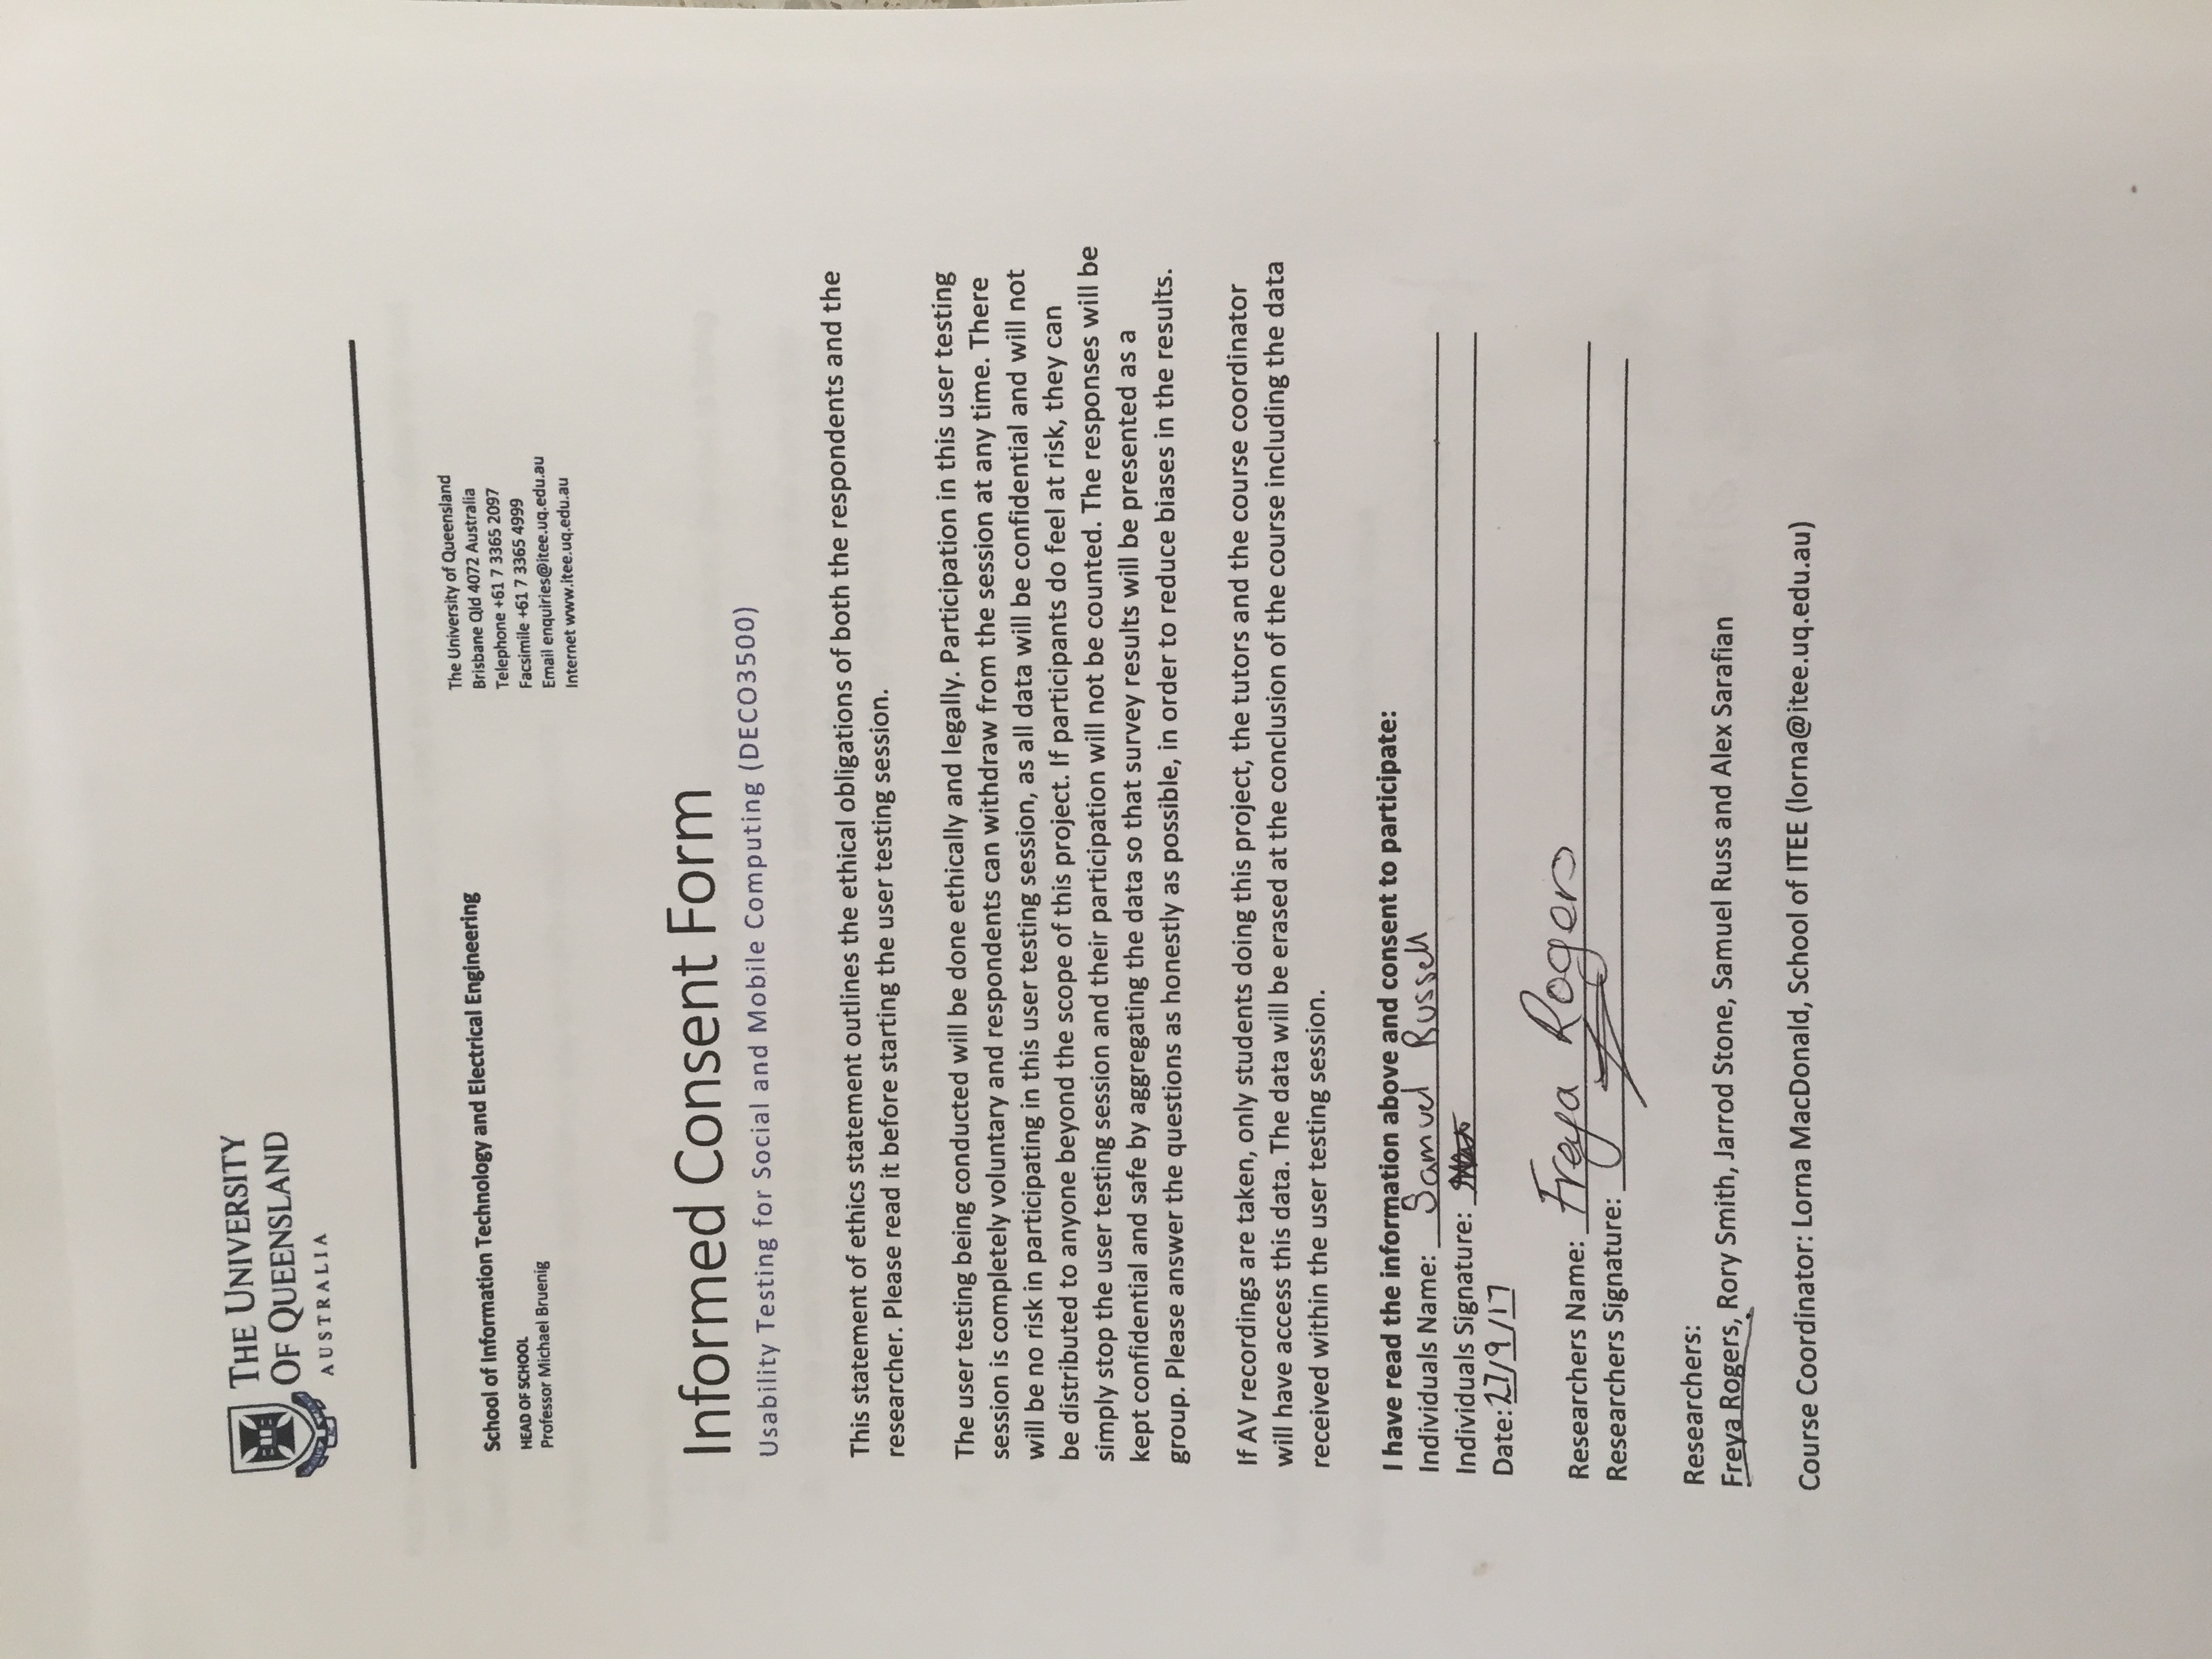 THE UNIVERSITY
OF QUEENSLAND
AUSTRALIA
School of Information Technology and Electrical Engineering
HEAD OF SCHOOL
Professor Michael Bruenig
The University of Queensland
Brisbane Qld 4072 Australia
Telephone +61 7 3365 2097
Facsimile +61 7 3365 4999
Email enquiries@itee.uq.edu.au
Internet www.itee.uq.edu.au
Informed Consent Form
Usability Testing for Social and Mobile Computing (DECO3500)
This statement of ethics statement outlines the ethical obligations of both the respondents and the
researcher. Please read it before starting the user testing session.
The user testing being conducted will be done ethically and legally. Participation in this user testing
session is completely voluntary and respondents can withdraw from the session at any time. There
will be no risk in participating in this user testing session, as all data will be confidential and will not
be distributed to anyone beyond the scope of this project. If participants do feel at risk, they can
simply stop the user testing session and their participation will not be counted. The responses will be
kept confidential and safe by aggregating the data so that survey results will be presented as a
group. Please answer the questions as honestly as possible, in order to reduce biases in the results.
If AV recordings are taken, only students doing this project, the tutors and the course coordinator
will have access this data. The data will be erased at the conclusion of the course including the data
received within the user testing session.
I have read the information above and consent to participate:
Individuals Name: Samuel Russell
Individuals Signature:
Date: 27/9/17
Researchers Name: Freya Rogers
Researchers Signature:
Researchers:
Freya Rogers, Rory Smith, Jarrod Stone, Samuel Russ and Alex Sarafian
Course Coordinator: Lorna MacDonald, School of ITEE (lorna@itee.uq.edu.au)